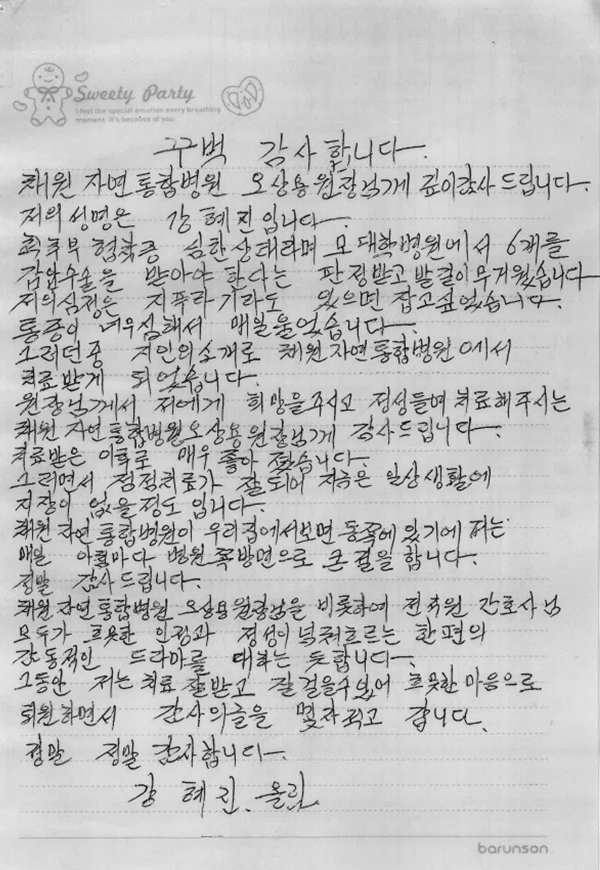 Sweety Party
I feel the special emotion every breathing
moment. It's because of you.
꾸벅 감사합니다.
채원 자연통합병원 오상용원장님게 깊이감사드립니다.
저의성명은 강혜진입니다.
척추부 협착증 심한상태라며 모대학병원에서 6개를
감압수술을 받아야 한다는 판정받고 발걸이무거웠습니다
저의심정은 지푸라기라도 있으면 잡고싶었습니다.
통증이 너무심해서 매일울었습니다.
그러던중 지인의소개로 채원자연통합병원에서
치료받게 되었습니다.
원장님게서 저에게 희망을주시고 정성들여치료해주시는
채원자연통합병원오상용원장님게 감사드립니다.
치료받은 이후로 매우좋아졌습니다.
그러면서 점점치료가 잘되어 지금은 일상생활에
지장이 없을정도입니다.
채원자연통합병원이 우리집에서보면동쪽에있기에 저는
매일 아침마다 병원쪽방면으로 큰절을 합니다.
정말 감사드립니다.
채원자연통합병원 오상용원장님을 비롯하여 전직원 간호사님
모두가 흐믓한 인정과 정성이넘쳐흐르는 한편의
감동적인 드라마를 대하는 듯합니다.
그동안 저는치료잘받고 잘걸을수있어 흐믓한마음으로
퇴원하면서 감사의글을 몇자적고 갑니다.
정말 정말 감사합니다.
강혜진 올림.
barunson